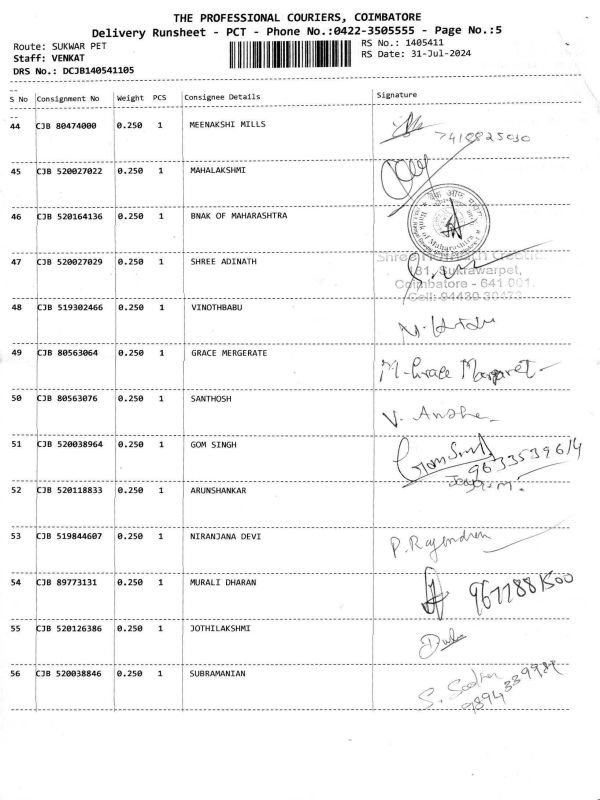 THE PROFESSIONAL COURIERS, COIMBATORE
Delivery Runsheet - PCT - Phone No.:0422-3505555 - Page No.:5
Route: SUKWAR PET
RS No.: 1405411
Staff: VENKAT
RS Date: 31-Jul-2024
DRS No.: DCJB140541105
S No Consignment No Weight PCS Consignee Details Signature
44 CJB 80474000 0.250 1 MEENAKSHI MILLS
45 CJB 520027022 0.250 1 MAHALAKSHMI
46 CJB 520164136 0.250 1 BNAK OF MAHARASHTRA
Bank of Maharashtra
47 CJB 520027029 0.250 1 SHREE ADINATH
Shree
81, Sukrawarpet,
Coimbatore - 641 001.
Cell: 94430 30473
48 CJB 519302466 0.250 1 VINOTHBABU
49 CJB 80563064 0.250 1 GRACE MERGERATE
M. Grace Margaret
50 CJB 80563076 0.250 1 SANTHOSH
51 CJB 520038964 0.250 1 GOM SINGH
Gom Singh
9633539614
52 CJB 520118833 0.250 1 ARUNSHANKAR
53 CJB 519844607 0.250 1 NIRANJANA DEVI
P. Rajendren
54 CJB 89773131 0.250 1 MURALI DHARAN
9677881500
55 CJB 520126386 0.250 1 JOTHILAKSHMI
56 CJB 520038846 0.250 1 SUBRAMANIAN